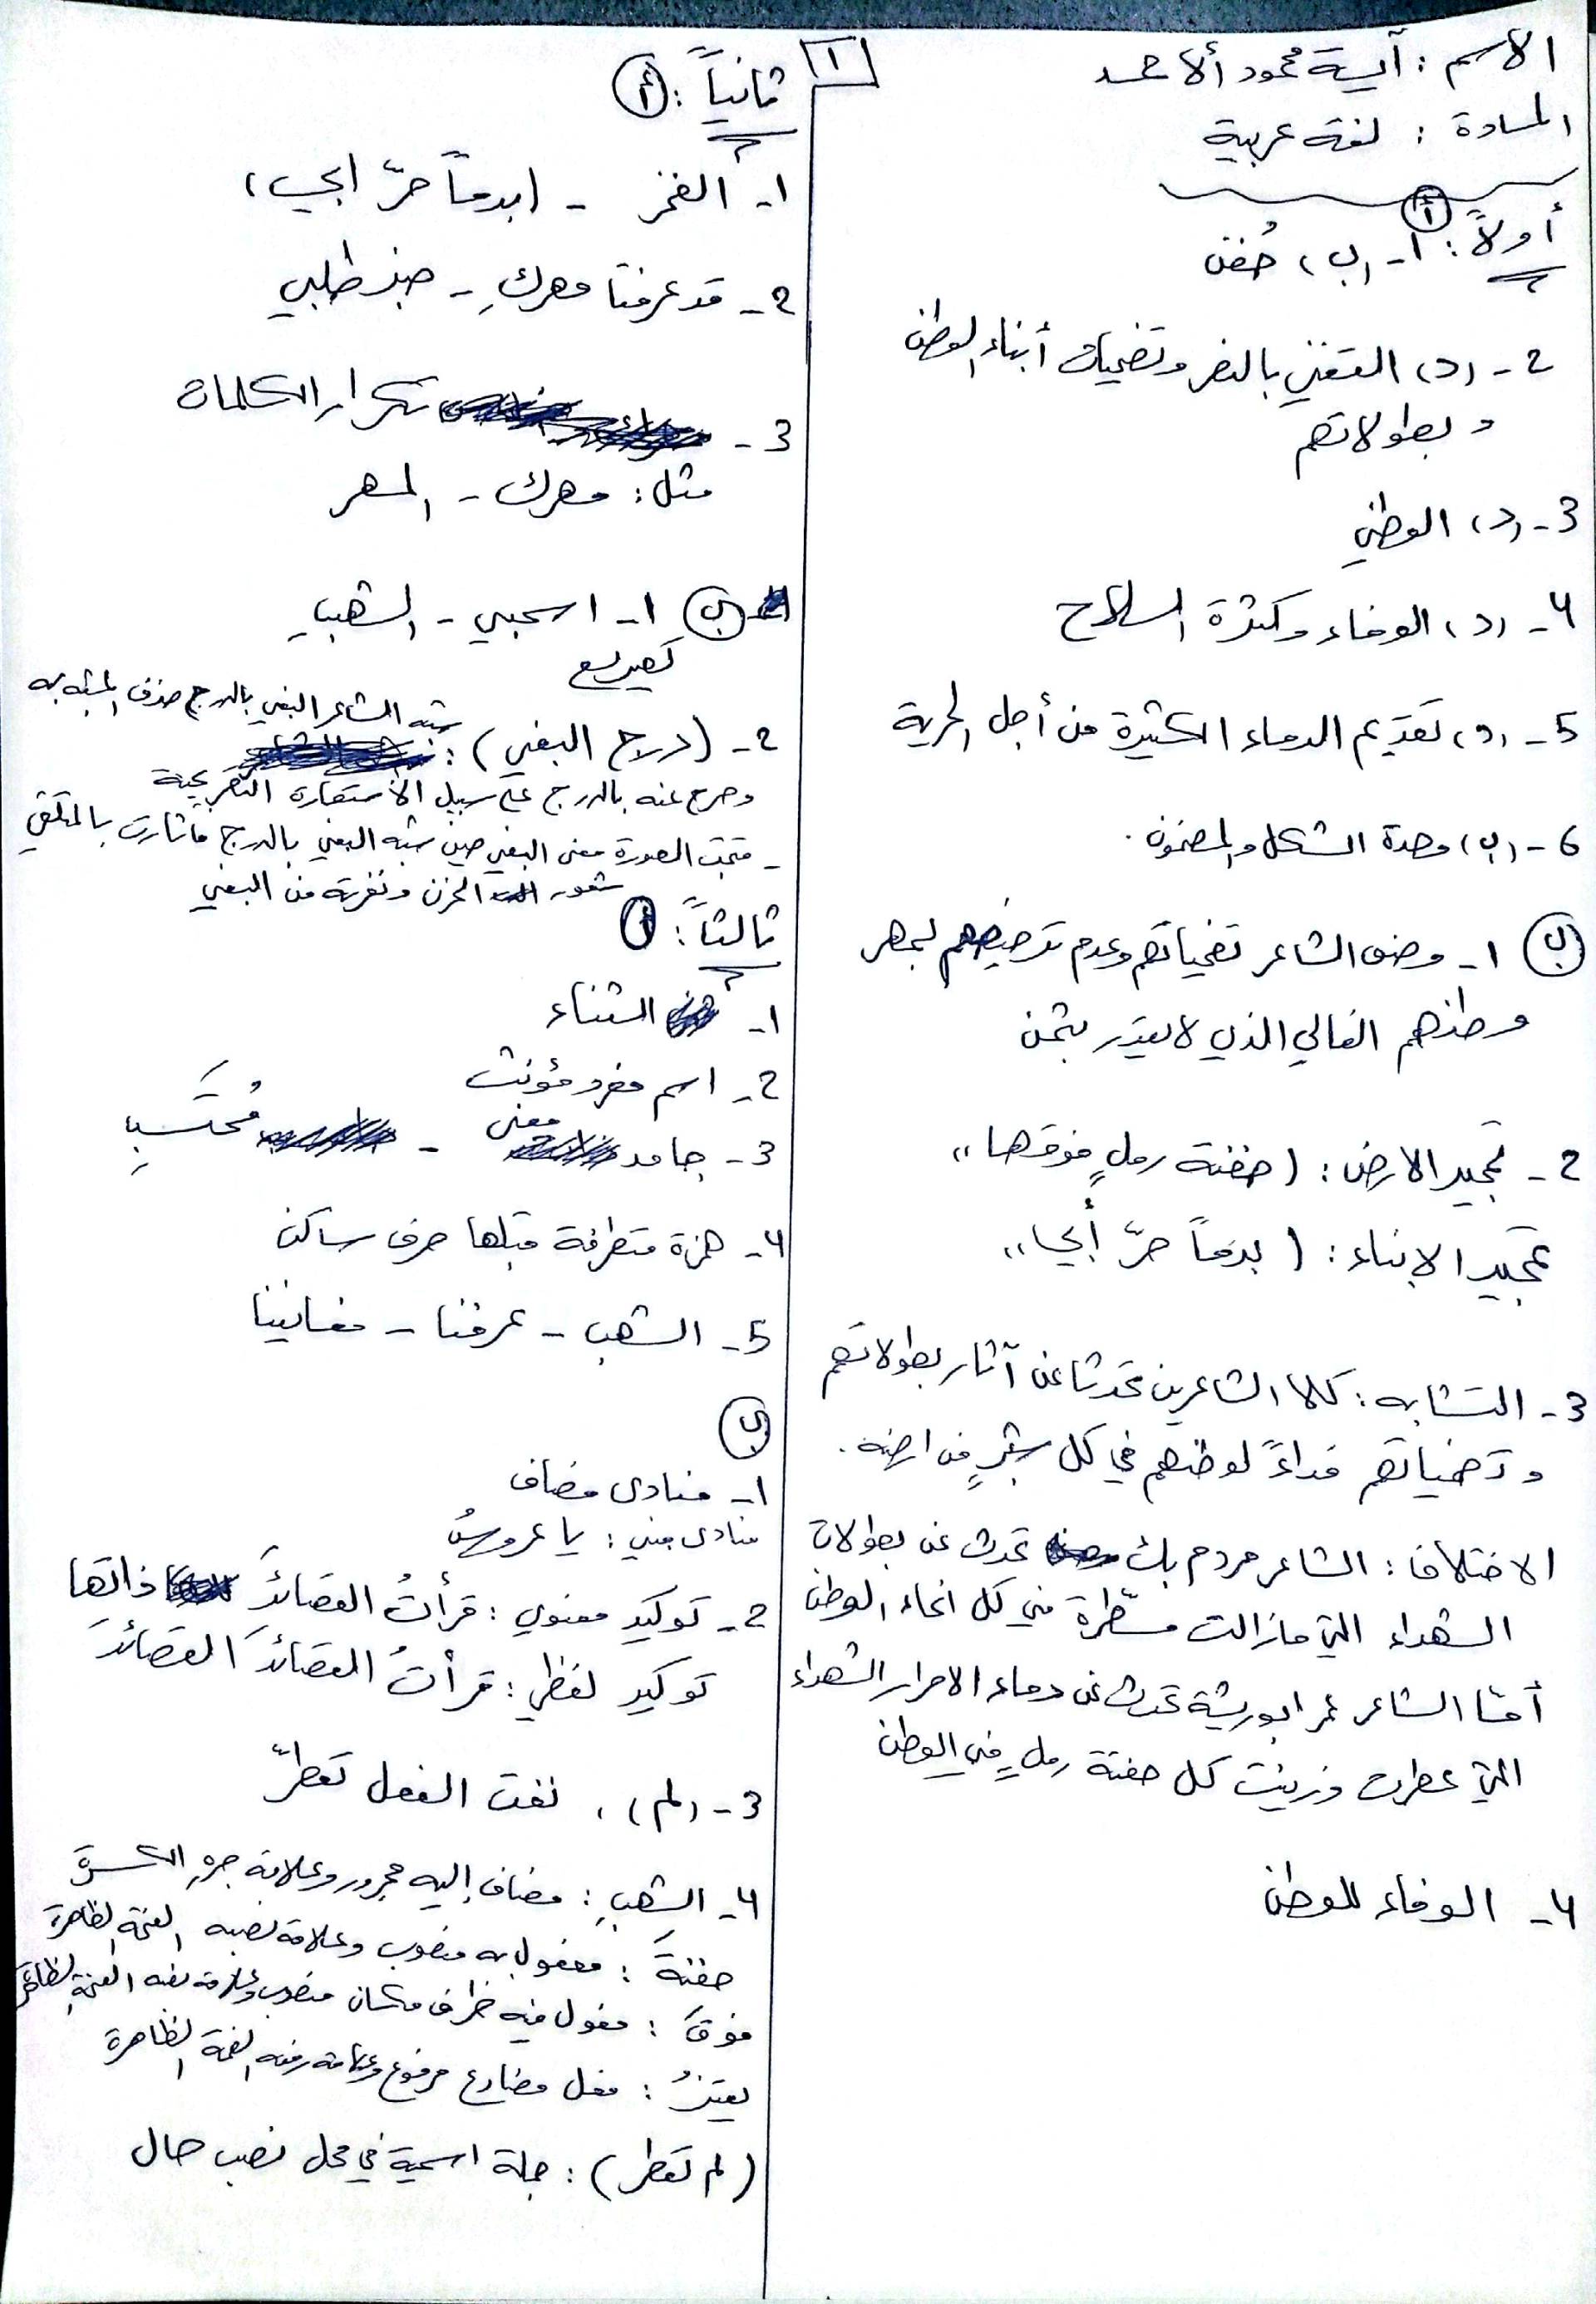 الاسم : آسية محمود الأحمد
المادة : لغة عربية
أولاً : أ 1- (ب) حُفن
2- (د) التغني بالنصر وتضحيات أبناء الوطن
وبطولاتهم
3- (د) الوطني
4- (د) الوفاء وكثرة السلاح
5- (د) تقديم الدماء الكثيرة من أجل الحرية
6- (ب) وحدة الشكل والمضمون .
ب 1- وصف الشاعر تضحياتهم وعدم ترخيصهم لمهر
وطنهم الغالي الذي لا يقدر بثمن
2- تمجيد الارض : (حفنة رملٍ فوقها)
تمجيد الابناء : (بدماً حرّ أبي)
3- التشابه : كلا الشاعرين تحدثا عن آثار بطولاتهم
وتضحياتهم فداءً لوطنهم في كل شبرٍ من ارضه .
الاختلاف : الشاعر مردم بك تحدث عن بطولات
الشهداء التي مازالت مسطّرة في كل انحاء الوطن
أمّا الشاعر عمر ابو ريشة تحدث عن دماء الاحرار الشهداء
التي عطرت وزينت كل حفنة رملٍ في الوطن
4- الوفاء للوطن
1
ثانياً : أ
1- الفخر - (بدماً حرّ ابي)
2- قد عرفنا مهركِ - خبر طلبي
3- تكرار الكلمات
مثل : مهرك - المهر
ب 1- اسحبي - الشهبِ
تصريع
2- (درج البغي) : شبه الشاعر البغي بالدرج حذف المشبه به
وصرح عنه بالدرج على سبيل الأستعارة التصريحية
- قبحت الصورة معنى البغي حين شبه البغي بالدرج فأثارت بالمتلقي
شعور الحزن ونفرته من البغي
ثالثاً : أ
1- الثناء
2- اسم مفرد مؤنث
3- جامد معنى - مُحتَسِبِ
4- همزة متطرفة قبلها حرف ساكن
5- الشهب - عرفنا - مغانينا
ب
1- منادى مضاف
منادى مبني : يا عروسُ
2- توكيد معنوي : قرأتُ القصائدَ ذاتها
توكيد لفظي : قرأتُ القصائدَ القصائدَ
3- (لم) ، نفت الفعل تعطرّ
4- الشهبِ : مضاف إليه مجرور وعلامة جره الكسرة
حفنةً : مفعول به منصوب وعلامة نصبه الفتحة الظاهرة
فوقَ : مفعول فيه ظرف مكان منصوب وعلامة نصبه الفتحة الظاهرة
يعتزُ : فعل مضارع مرفوع وعلامة رفعه الضمة الظاهرة
(لم تعطر) : جملة اسمية في محل نصب حال